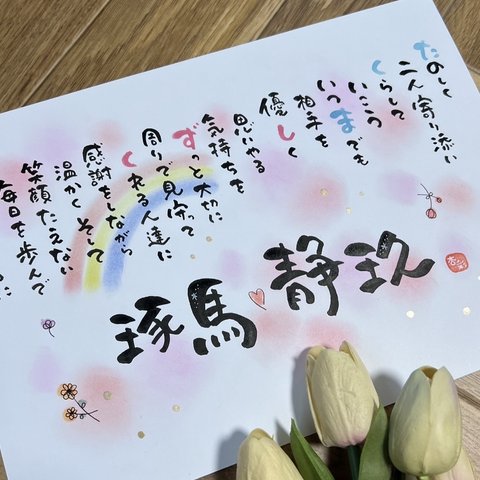 たのしく
二人寄り添い
くらして
いこう
いつまでも
相手を
優しく
思いやる
気持ちを
ずっと大切に
周りで見守って
くれる人達に
感謝をしながら
温かく そして
笑顔たえない
毎日を歩んで
に
琢馬 静玖